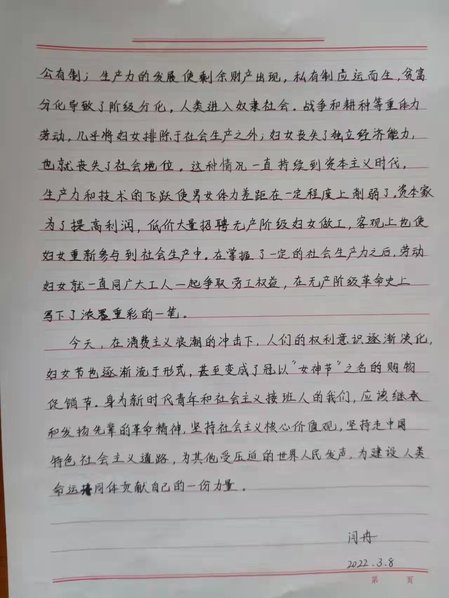 公有制；生产力的发展使剩余财产出现，私有制应运而生，贫富
分化导致了阶级分化，人类进入奴隶社会。战争和耕种等重体力
劳动，几乎将妇女排除于社会生产之外；妇女丧失了独立经济能力，
也就丧失了社会地位。这种情况一直持续到资本主义时代，
生产力和技术的飞跃使男女体力差距在一定程度上削弱了，资本家
为了提高利润，低价大量招聘无产阶级妇女做工，客观上也使
妇女重新参与到社会生产中。在掌握了一定的社会生产力之后，劳动
妇女就一直同广大工人一起争取劳工权益，在无产阶级革命史上
写下了浓墨重彩的一笔。
今天，在消费主义浪潮的冲击下，人们的权利意识逐渐淡化，
妇女节也逐渐流于形式，甚至变成了冠以“女神节”之名的购物
促销节。身为新时代青年和社会主义接班人的我们，应该继承
和发扬先辈的革命精神，坚持社会主义核心价值观，坚持走中国
特色社会主义道路，为其他受压迫的世界人民发声，为建设人类
命运共同体贡献自己的一份力量。
闫冉
2022.3.8
第 页